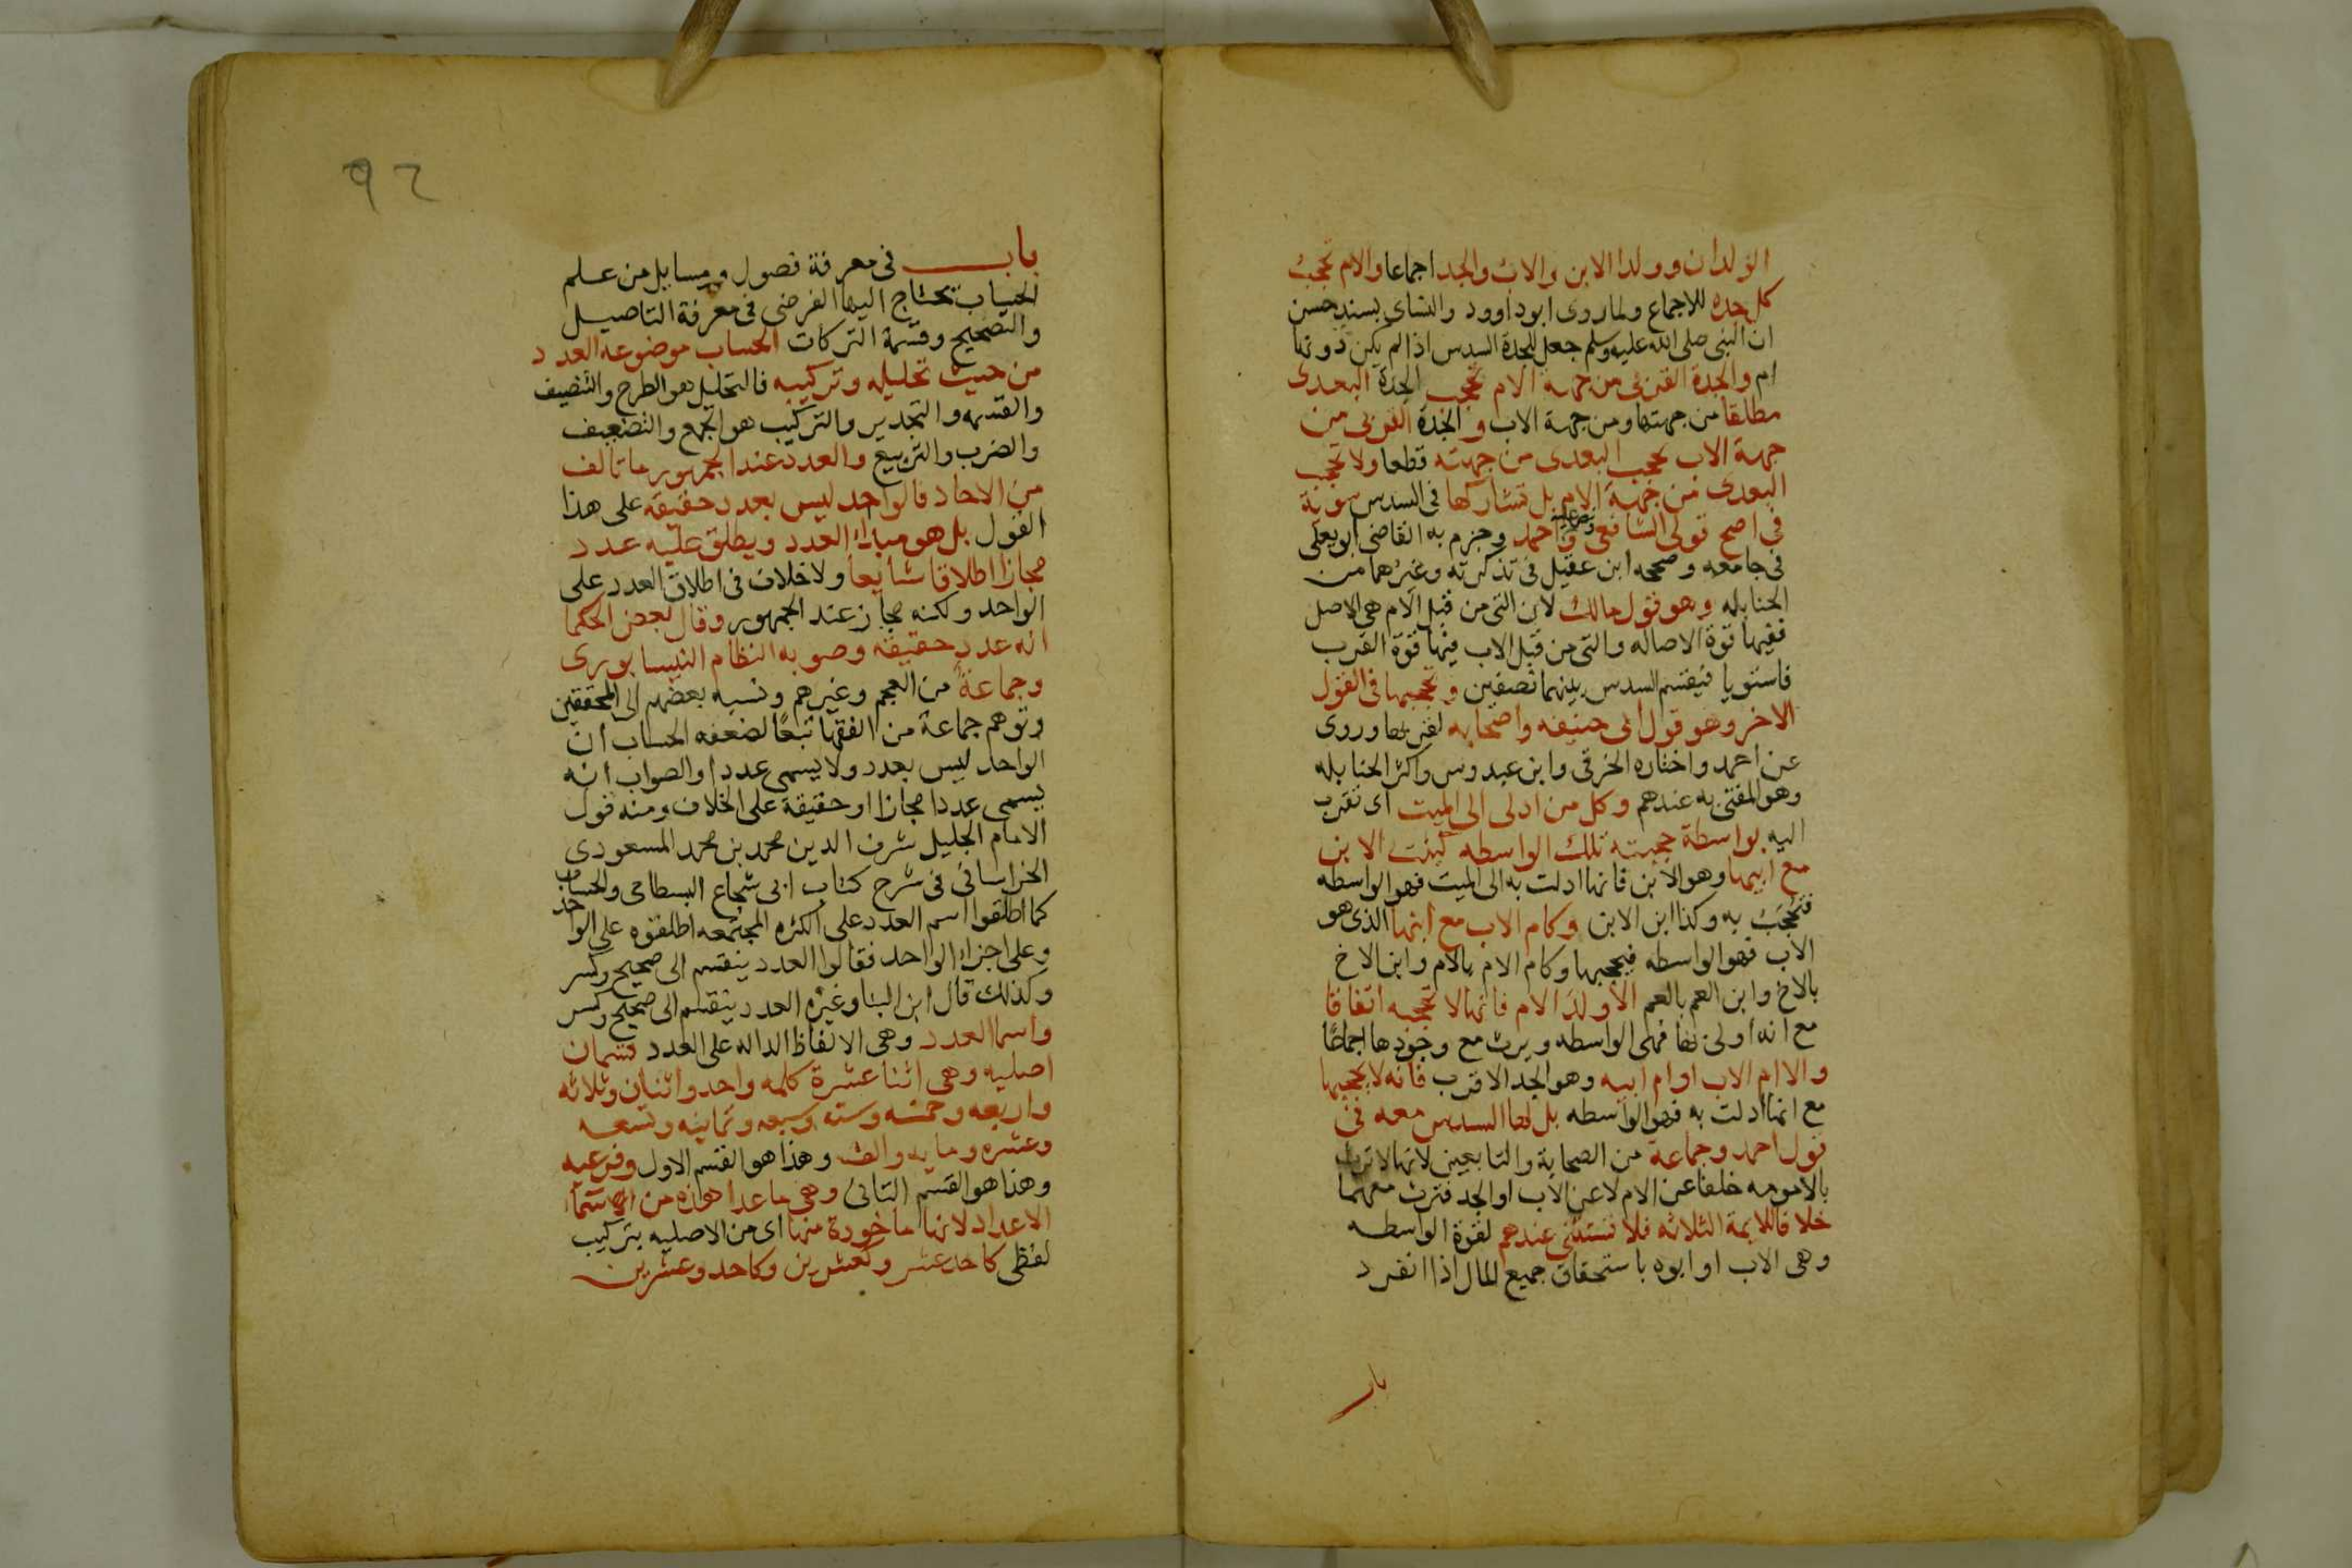 الولدان وولدا الابن والاب والجد اجماعا والام تحجب
كل جده للاجماع ولما روى ابو داوود والنساى بسند حسن
ان النبى صلى الله عليه وسلم جعل للجدة السدس اذا لم يكن دونها
ام والجدة القربى من جهه الام تحجب الجدة البعدى
مطلقا من جهتها ومن جهة الاب والجدة القربى من
جهة الاب تحجب البعدى من جهته قطعا ولا تحجب
البعدى من جهة الام بل تشاركها فى السدس سوية
فى اصح قولى الشافعى واحمد وجزم به القاضى ابو يعلى
فى جامعه وصححه ابن عقيل فى تذكرته وغيرهما من
الحنابله وهو قول مالك لان التى من قبل الام هى الاصل
ففيها قوة الاصاله والتى من قبل الاب فيها قوة القرب
فاستويا فيقسم السدس بينهما نصفين وتحجبها فى القول
الاخر وهو قول ابى حنيفه واصحابه لقربها وروى
عن احمد واختاره الخرقى وابن عبدوس واكثر الحنابله
وهو المفتى به عندهم وكل من ادلى الى الميت اى تقرب
اليه بواسطة حجبته تلك الواسطه كبنت الابن
مع ابيها وهو الابن فانها ادلت به الى الميت فهو الواسطه
فتحجب به وكذا ابن الابن وكام الاب مع ابنها الذى هو
الاب فهو الواسطه فيحجبها وكام الام بالام وابن الاخ
بالاخ وابن العم بالعم الا ولد الام فانها لا تحجبه اتفاقا
مع انه ادلى بها فهى الواسطه ويرث مع وجودها اجماعا
والا ام الاب او ام ابيه وهو الجد الاقرب فانه لا يحجبها
مع انها ادلت به فهو الواسطه بل لها السدس معه فى
قول احمد وجماعة من الصحابة والتابعين لانها لا ترث
بالامومه خلفا عن الام لا عن الاب او الجد فترث معهما
خلافا للايمة الثلاثه فلا تستثنى عندهم لقوة الواسطه
وهى الاب او ابوه باستحقاق جميع المال اذا انفرد
باب
92
باب فى معرفة فصول ومسايل من علم
الحساب يحتاج اليها الفرضى فى معرفة التاصيل
والتصحيح وقسمة التركات الحساب موضوعه العدد
من حيث تحليله وتركيبه فالتحليل هو الطرح والتنصيف
والقسمه والتجدير والتركيب هو الجمع والتضعيف
والضرب والتربيع والعدد عند الجمهور ما تالف
من الاحاد فالواحد ليس بعدد حقيقة على هذا
القول بل هو مبدا العدد ويطلق عليه عدد
مجازا اطلاقا شايعا ولا خلاف فى اطلاق العدد على
الواحد ولكنه مجاز عند الجمهور وقال بعض الحكما
انه عدد حقيقة وصوبه النظام النيسابورى
وجماعة من العجم وغيرهم ونسبه بعضهم الى المحققين
وتوهم جماعة من الفقها تبعا لضعفه الحساب ان
الواحد ليس بعدد ولا يسمى عددا والصواب انه
يسمى عددا مجازا او حقيقة على الخلاف ومنه قول
الامام الجليل شرف الدين محمد بن محمد المسعودى
الخراسانى فى شرح كتاب ابى شجاع البسطامى والحساب
كما اطلقوا اسم العدد على الكثره المجتمعه اطلقوه على الواحد
وعلى اجزاء الواحد فقالوا العدد ينقسم الى صحيح وكسر
وكذلك قال ابن البنا وغيره العدد ينقسم الى صحيح وكسر
واسما العدد وهى الالفاظ الداله على العدد قسمان
اصليه وهى اثنا عشرة كلمه واحد واثنان وثلاثه
واربعه وخمسه وسته وسبعه وثمانيه وتسعه
وعشره ومايه والف وهذا هو القسم الاول وفرعيه
وهذا هو القسم الثانى وهى ما عدا هذه من اسما
الاعداد لانها ماخوذة منها اى من الاصليه بتركيب
لفظى كاحد عشر وكعشرين وكاحد وعشرين